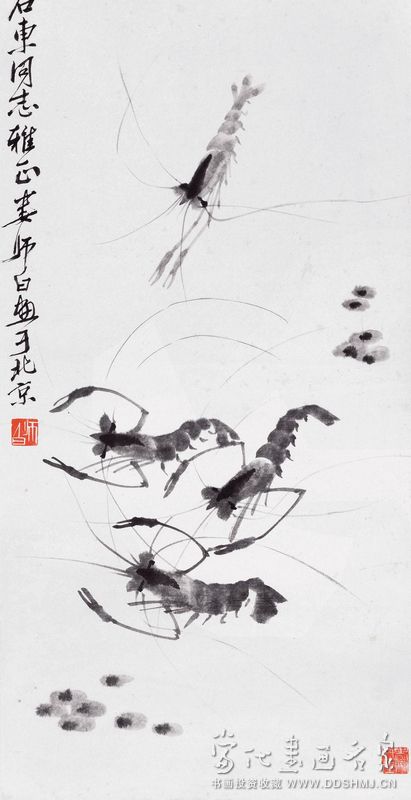 石東同志雅正娄师白畫于北京
师白
当代書画名家
书画投资收藏 WWW.DDSHMJ.CN